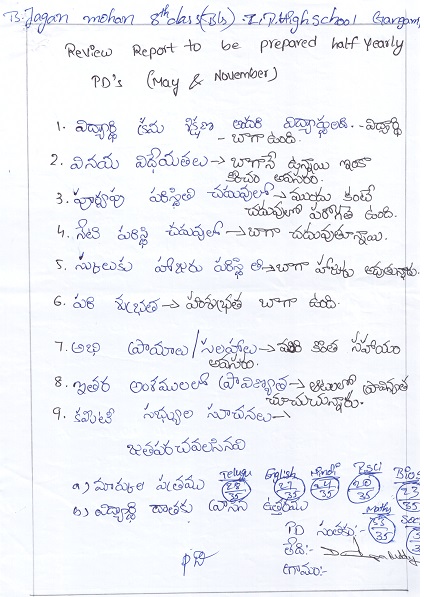 B. Jagan mohan 8th class (Bls) Z.P. High school Gangam
Review Report to be prepared half Yearly
PD's (May & November)
1. విద్యార్థి క్రమ శిక్షణ - విద్యార్థి
- బాగా ఉంది.
2. వినయ విధేయతలు → బాగానే ఉన్నాయి ఇంకా
కొంచెం అవసరం.
3. పూర్వపు పరిస్థితి చదువులో → ముందు కంటే
చదువులో పురోగతి ఉంది.
4. నేటి పరిస్థితి చదువులో → బాగా చదువుతున్నాయి.
5. స్కూలుకు హాజరు పరిస్థితి → బాగా హాజరు అవుతున్నారు.
6. పరిశుభ్రత → పరిశుభ్రత బాగా ఉంది.
7. అభిప్రాయాలు / సలహాలు → మరి కొంత సహాయం
అవసరం.
8. ఇతర అంశములలో ప్రావిణ్యత → ఆటలలో ప్రావిణ్యత
చూచుచున్నారు.
9. కమిటీ సభ్యుల సూచనలు →
జతపరచవలసినవి
Telugu English Hindi P.Sci Bios
a) మార్కుల పత్రము 28/35 27/35 24/35 20/35 23/35
b) విద్యార్థి దాతకు వ్రాసిన ఉత్తరము Maths Soc
33/35
PD సంతకం:-
తేది:-
గ్రామం:-
PD